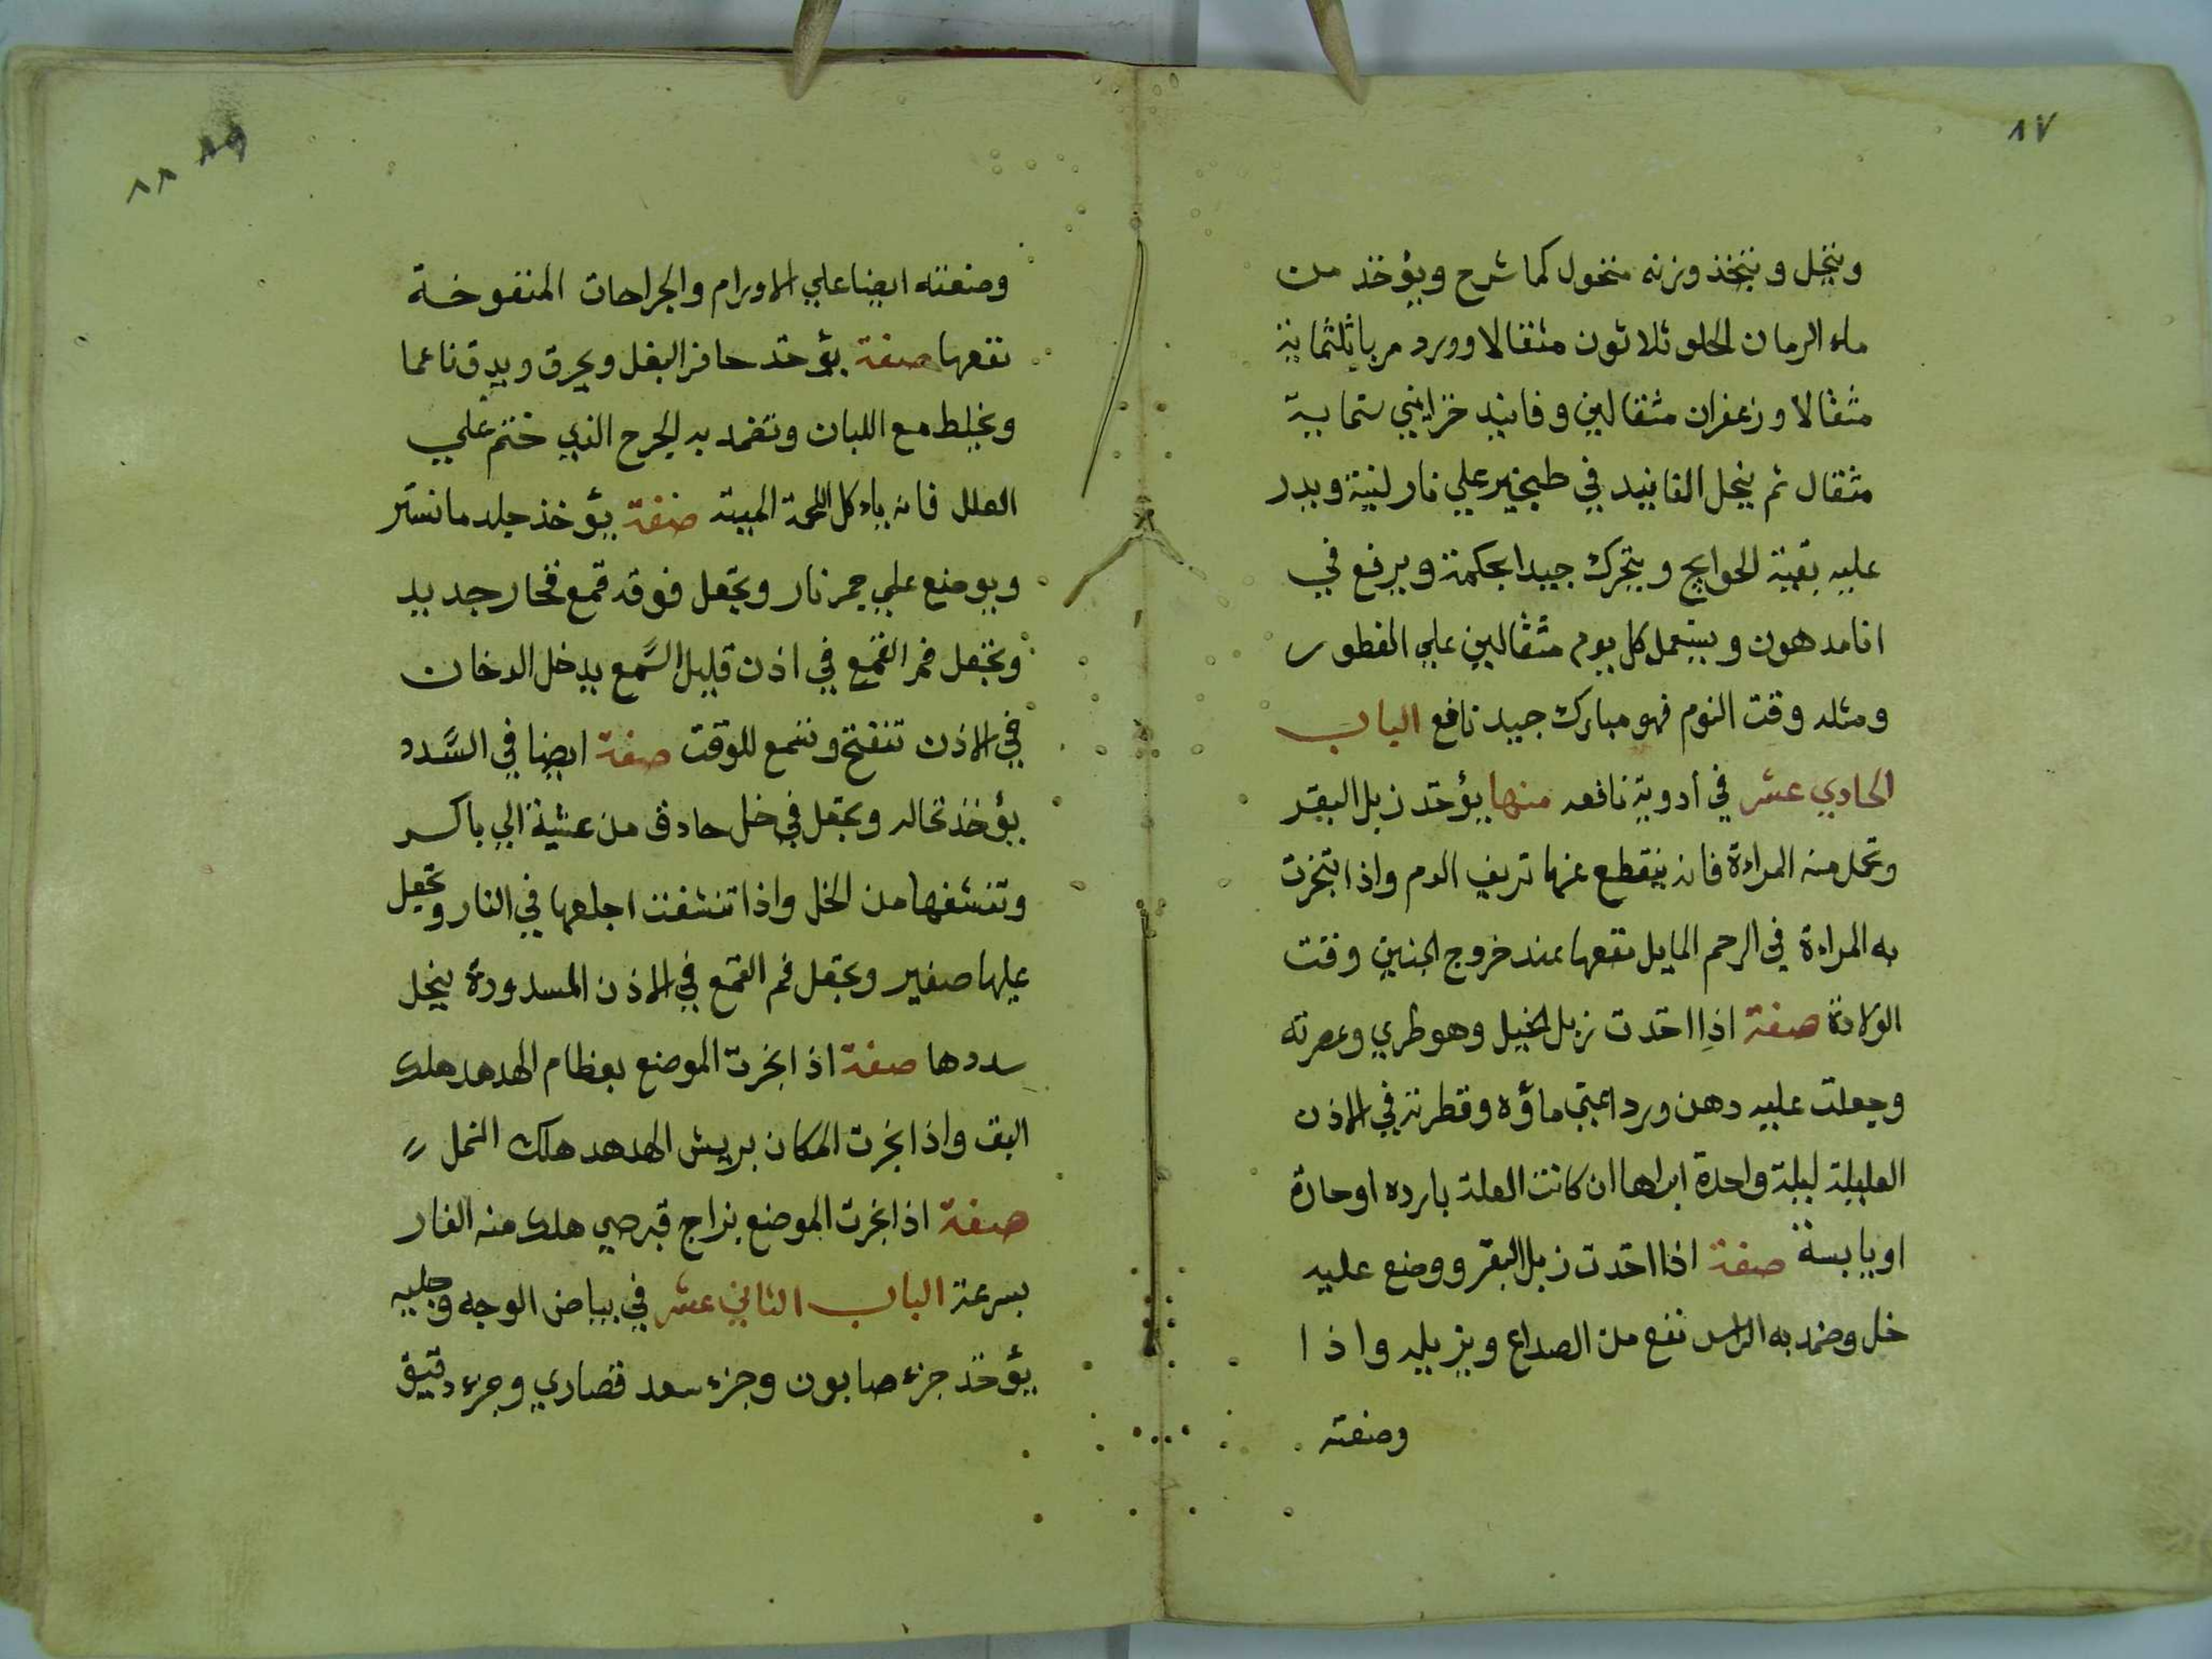 ٨٧
وينخل ويتخذ وزنه منخول كما شرح ويؤخذ من
ماء الرمان الحلو ثلاثون مثقالا وورد مربا ثلثماية
مثقالا وزعفران مثقالين وفانيد خزايني ستماية
مثقال ثم ينحل الفانيد في طبخير علي نار لينة ويدر
عليه بقية الحوايج ويتحرك جيدا بحكمة ويرفع في
انا مدهون ويستعمل كل يوم مثقالين علي الفطور
ومثله وقت النوم فهو مبارك جيد نافع الباب
الحادي عشر في ادوية نافعه منها يؤخد زبل البقر
وتحمل منه المراءة فانه ينقطع عنها تريف الدم واذا تبخرت
به المراءة في الرحم المايل نفعها عند خروج الجنين وقت
الولادة صفة اذا اخدت زبل الخيل وهو طري وعصرته
وجعلت عليه دهن ورد اعني ماؤه وقطرته في الاذن
العليلة ليلة واحدة ابراها ان كانت العلة بارده او حارة
او يابسة صفة اذا اخدت زبل البقر ووضع عليه
خل وضمد به الراس نفع من الصداع ويزيله واذا
وضعته
٨٨
وضعته ايضا علي الاورام والجراحات المنفوخة
نفعها صفة يؤخد حافر البغل ويحرق ويدق ناعما
ويخلط مع اللبان وتضمد به الجرح الذي ختم علي
العلل فانه ياءكل اللحمة الميتة صفة يؤخذ جلد ما نستر
ويوضع علي جمر نار ويجعل فوقه قمع فخار جديد
ويجعل فم القمع في اذن قليل السمع يدخل الدخان
في الاذن تنفتح وتسمع للوقت صفة ايضا في السدد
يؤخذ نخاله ويجعل في خل حادق من عشية الي باكر
وتنشفها من الخل واذا تنشفت اجعلها في النار وتجعل
عليها صفير ويجعل فم القمع في الاذن المسدودة ينحل
سددها صفة اذا بخرت الموضع بعظام الهدهد هلك
البق واذا بخرت المكان بريش الهدهد هلك النمل
صفة اذا بخرت الموضع بزاج قبرصي هلك منه الفار
بسرعة الباب الثاني عشر في بياض الوجه وجليه
يؤخد جزء صابون وجزء سعد قصاري وجزء دقيق